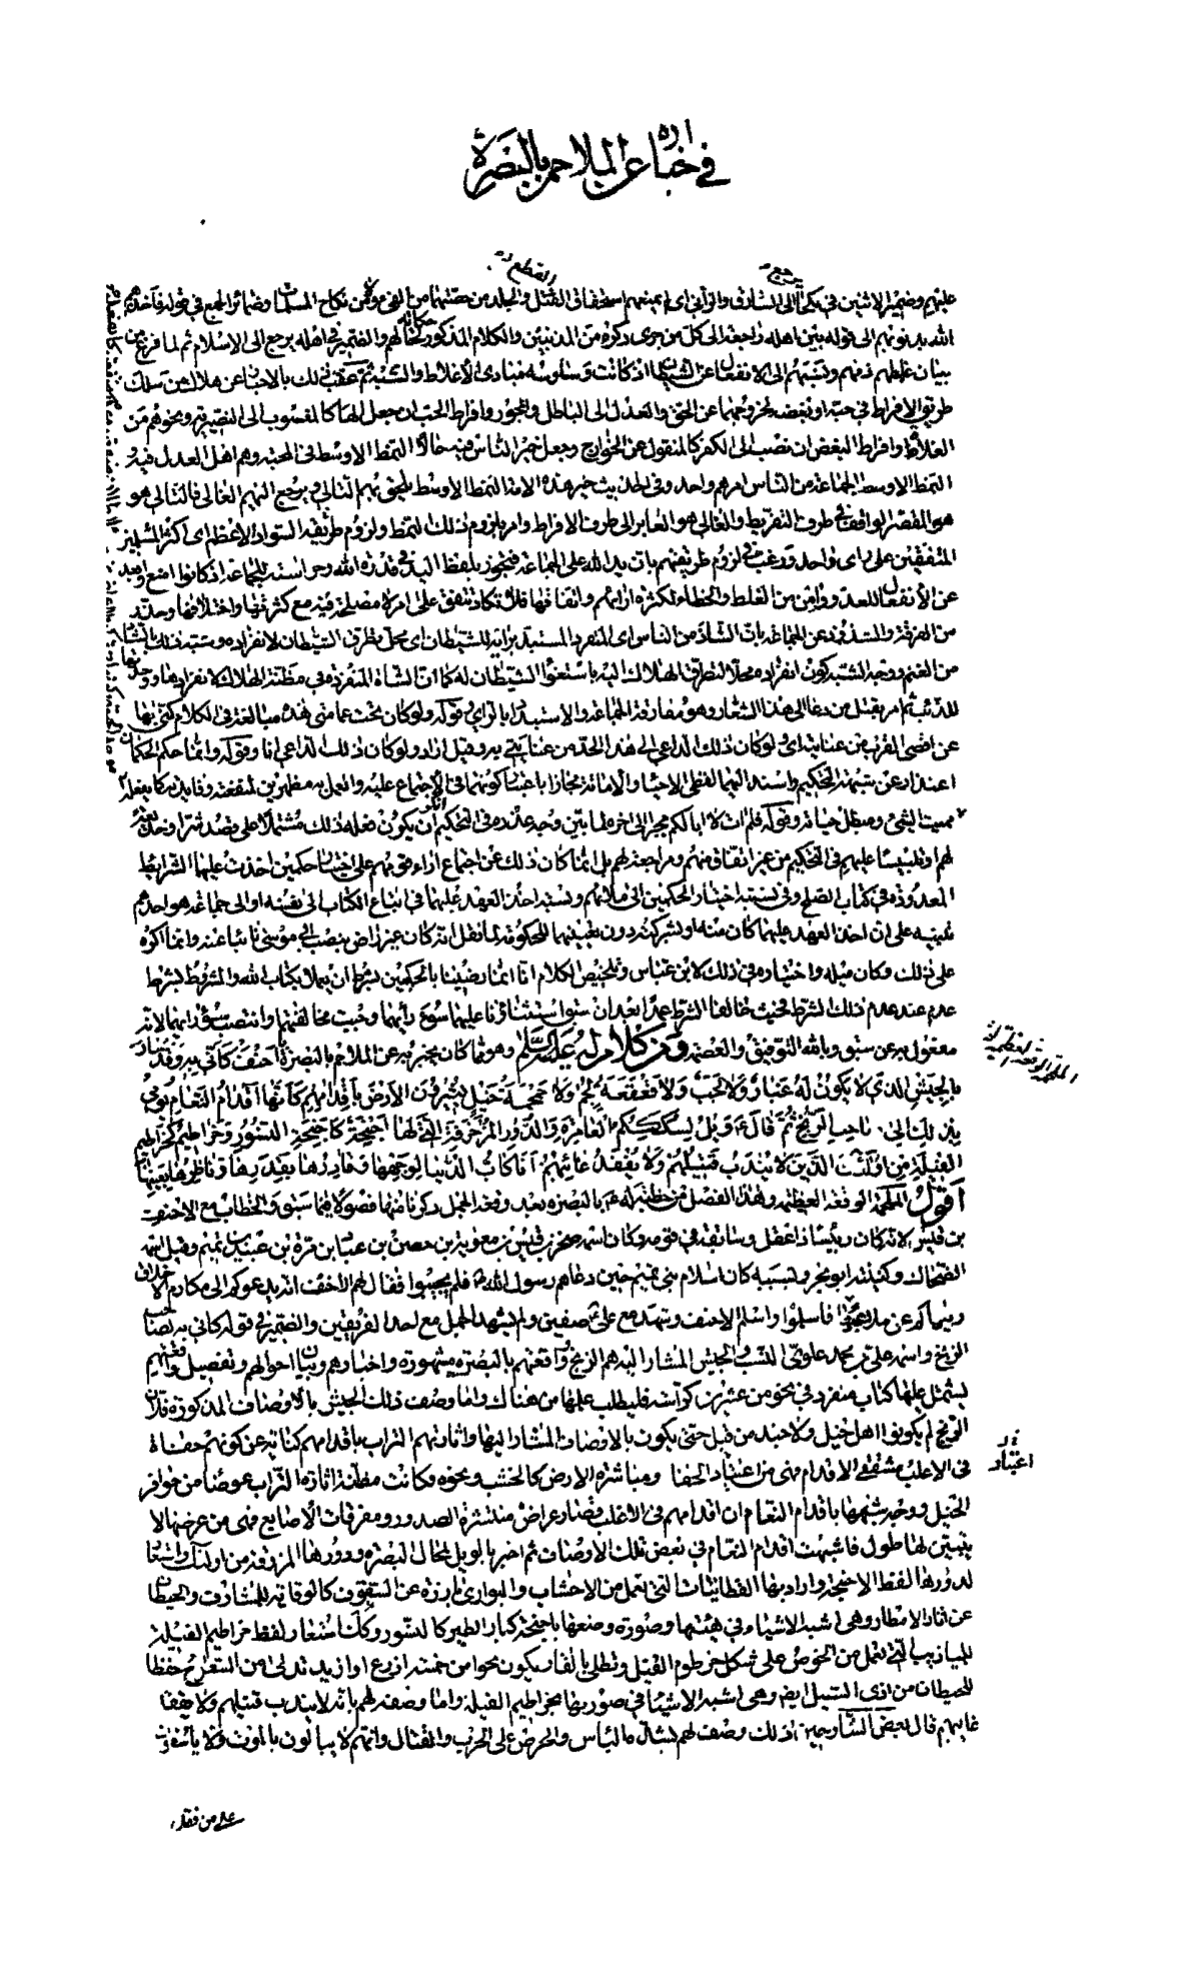 في اخباره عن الملاحم بالبصرة
عليهم وضمير الاثنين في نكحا الى السارق والزاني اى لم يمنعهم استحقاق القتل والجلد من حقهما من الفئ ولا من نكاح المسلمات وضمائر الجمع في قوله فاخذهم
الله بذنوبهم الى قوله بين اهله راجعة الى كل من جرى ذكره من المذنبين والكلام المذكور حكاية لحالهم والضمير في اهله يرجع الى الاسلام ثم لما فرغ من
بيان غلطهم ذمهم ونسبهم الى الانفعال عن الشيطان اذ كانت وساوسه مبادى الأغلاط والشبه ثم عقب ذلك بالاخبار عن هلاك من سلك
طريق الافراط في حبه او بغضه لخروجهما عن الحق والعدل الى الباطل والجور وافراط الحب ان جعل الها كالمنسوب الى النصيرية ونحوهم من
الغلاة وافراط البغض ان نصب الى الكفر كالمنقول عن الخوارج وجعل خير الناس فيه حالا النمط الاوسط في المحبة وهم اهل العدل فيه و
النمط الاوسط الجماعة من الناس امرهم واحد وفي الحديث خير هذه الامة النمط الاوسط يلحق بهم التالى ويرجع اليهم الغالى فالتالى هو
هو المقصر الواقف في طرف التفريط والغالى هو العابر الى طرف الافراط وامر بلزوم ذلك النمط ولزوم طريقة السواد الاعظم اى اكثر المسلمين
المتفقين على راى واحد ورغب في لزوم طريقتهم بان يد الله على الجماعة فتجوز بلفظ اليد في قدرة الله وحراسته للجماعة اذ كانوا امنع وابعد
عن الانفعال للعدو وامن من الغلط والخطاء لكثرة ارائهم واتفاقها فلا تكاد تتفق على امر لا مصلحة فيه مع كثرتها واختلافها وحذر
من الفرقة والشذوذ عن الجماعة بان الشاذ من الناس اى المتفرد المستبد برايه للشيطان اى محل تطرق الشيطان لانفراده وشبه ذلك بالشاة
من الغنم ووجه الشبه كون انفراده محلا لتطرق الهلاك اليه باستغواء الشيطان له كما ان الشاة المنفردة في مظنة الهلاك لانفرادها ووحدتها
للذئب ثم امر بقتل من دعا الى هذا الشعار وهو مفارقة الجماعة والاستبداد بالراى وقوله ولو كان تحت عمامتى هذه مبالغة في الكلام كنى بها
عن اقصى القرب من عنايته اى ولو كان ذلك الداعى الى هذا الحد من عنايتى به وقيل اراد ولو كان ذلك الداعى انا وقوله وانما حكم الحكمان
اعتذار عن شبهة التحكيم واسند اليهما لفظى الاحياء والاماتة مجازا باعتبار كونهما في الاجتماع عليه والعمل به مظهرين لمنفعته وفايدته كما يفعله
مميت الشئ ومبطل حياته وقوله فلم ات لا ابا لكم بجرا الى اخره لما بين وجه عذره في التحكيم انكر ان يكون فعله ذلك مشتملا على قصد شر او خديعة
لهم او تلبيسا عليهم في التحكيم من غير اتفاق منهم ومراجعة لهم بل انما كان ذلك عن اجتماع اراء قومهم على اختيار حكمين اخذت عليهما الشرايط
المعدودة في كتاب الصلح وفي نسبته اختيار الحكمين الى ملائهم ونسبة اخذ العهد عليهما في اتباع الكتاب الى نفسه او الى جماعة هو احدهم
تنبيه على ان اخذ العهد عليهما كان منه او بشركته دون تعيينهما للحكومة لما نقل انه كان غير راض بنصب ابى موسى نائبا عنه وانما اكره
على ذلك وكان ميله واختياره في ذلك لابن عباس وتلخيص الكلام انا انما رضينا بالحكمين بشرط ان يعملا بكتاب الله والمشروط بشرط
عدم عند عدم ذلك الشرط فحيث خالفا الشرط عمدا بعد ان سبق استثناؤنا عليهما سوء رأيهما وجبت مخالفتهما وانتصب سوء رأيهما لانه
مفعول به عن سبق وبالله التوفيق والعصمة ومن كلام له عليه السلام وهو مما كان يخبر به عن الملاحم بالبصرة يا احنف كأنى به وقد سار
بالجيش الذى لا يكون له غبار ولا لجب ولا قعقعة لجم ولا حمحمة خيل يثيرون الارض باقدامهم كأنها اقدام النعام يومئ
بذلك الى صاحب الزنج ثم قال ع ويل لسكككم العامرة والدور المزخرفة التى لها اجنحة كاجنحة النسور وخراطيم كخراطيم
الفيلة من اولئك الذين لا يندب قتيلهم ولا يفقد غائبهم انا كاب الدنيا لوجهها وقادرها بقدرها وناظرها بعينها
اقول الملحمة الوقعة العظيمة وهذا الفصل من خطبة له ع بالبصرة بعد وقعة الجمل ذكرنا منها فصولا فيما سبق والخطاب مع الاحنف
بن قيس لانه كان رئيسا ذا عقل وسابقة في قومه وكان اسمه صخر بن قيس بن معوية بن حصن بن عباد بن مرة بن عبيد بن تميم وقيل اسمه
الضحاك وكنيته ابو بحر وبسببه كان اسلام بنى تميم حين دعاهم رسول الله ص فلم يجيبوا فقال لهم الاحنف انه يدعوكم الى مكارم الاخلاق
وينهاكم عن ملائمها فاسلموا واسلم الاحنف وشهد مع على ع صفين ولم يشهد الجمل مع احد الفريقين والضمير في قوله كانى به لصاحب
الزنج واسمه على بن محمد علوى النسب والجيش المشار اليه هم الزنج وواقعتهم بالبصرة مشهورة واخبارهم وبيان احوالهم وتفصيل واقعتهم
يشتمل عليها كتاب منفرد في نحو من عشرين كراسة فليطلب علمها من هناك واما وصف ذلك الجيش بالاوصاف المذكورة فلان
الزنج لم يكونوا اهل خيل ولا جند من قبل حتى يكون بالاوصاف المشار اليها واثارتهم التراب باقدامهم كناية عن كونهم حفاة
في الاغلب مشققى الاقدام فهى من اعتياد الحفا ومباشرة الارض كالخشب ونحوه فكانت مظنة اثارة التراب عوضا من حوافر
الخيل ووجه شبهها باقدام النعام ان اقدامهم في الاغلب قصار عراض منتشرة الصدور ومفرقات الاصابع فهى من عرضها لا
يتبين لها طول فاشبهت اقدام النعام في بعض تلك الاوصاف ثم اخبر بالويل لمحال البصرة ودورها المزخرفة من اولئك واستعار
لدورها لفظ الاجنحة واراد بها القطانيات التى تعمل من الاخشاب والبوارى بارزة عن السقوف كالوقاية للمشارف والحيطان
عن اثار الامطار وهى اشبه الاشياء في هيئتها وصورة وضعها باجنحة كبار الطير كالنسور وكذلك استعار لفظ خراطيم الفيلة
للميازيب التى تعمل من الخوص على شكل خرطوم الفيل وتطلى بالقار يكون نحوا من خمسة اذرع او ازيد تدلى من السطوح حفظا
للحيطان من اذى السيل ايضا وهى اشبه الاشياء في صورتها بخراطيم الفيلة واما وصفه لهم بانه لا يندب قتيلهم ولا يفقد
غايبهم قال بعض الشارحين ان ذلك وصف لهم بشدة الباس والحرص على الحرب والقتال وانهم لا يبالون بالموت ولا ياسفون
على من فقد